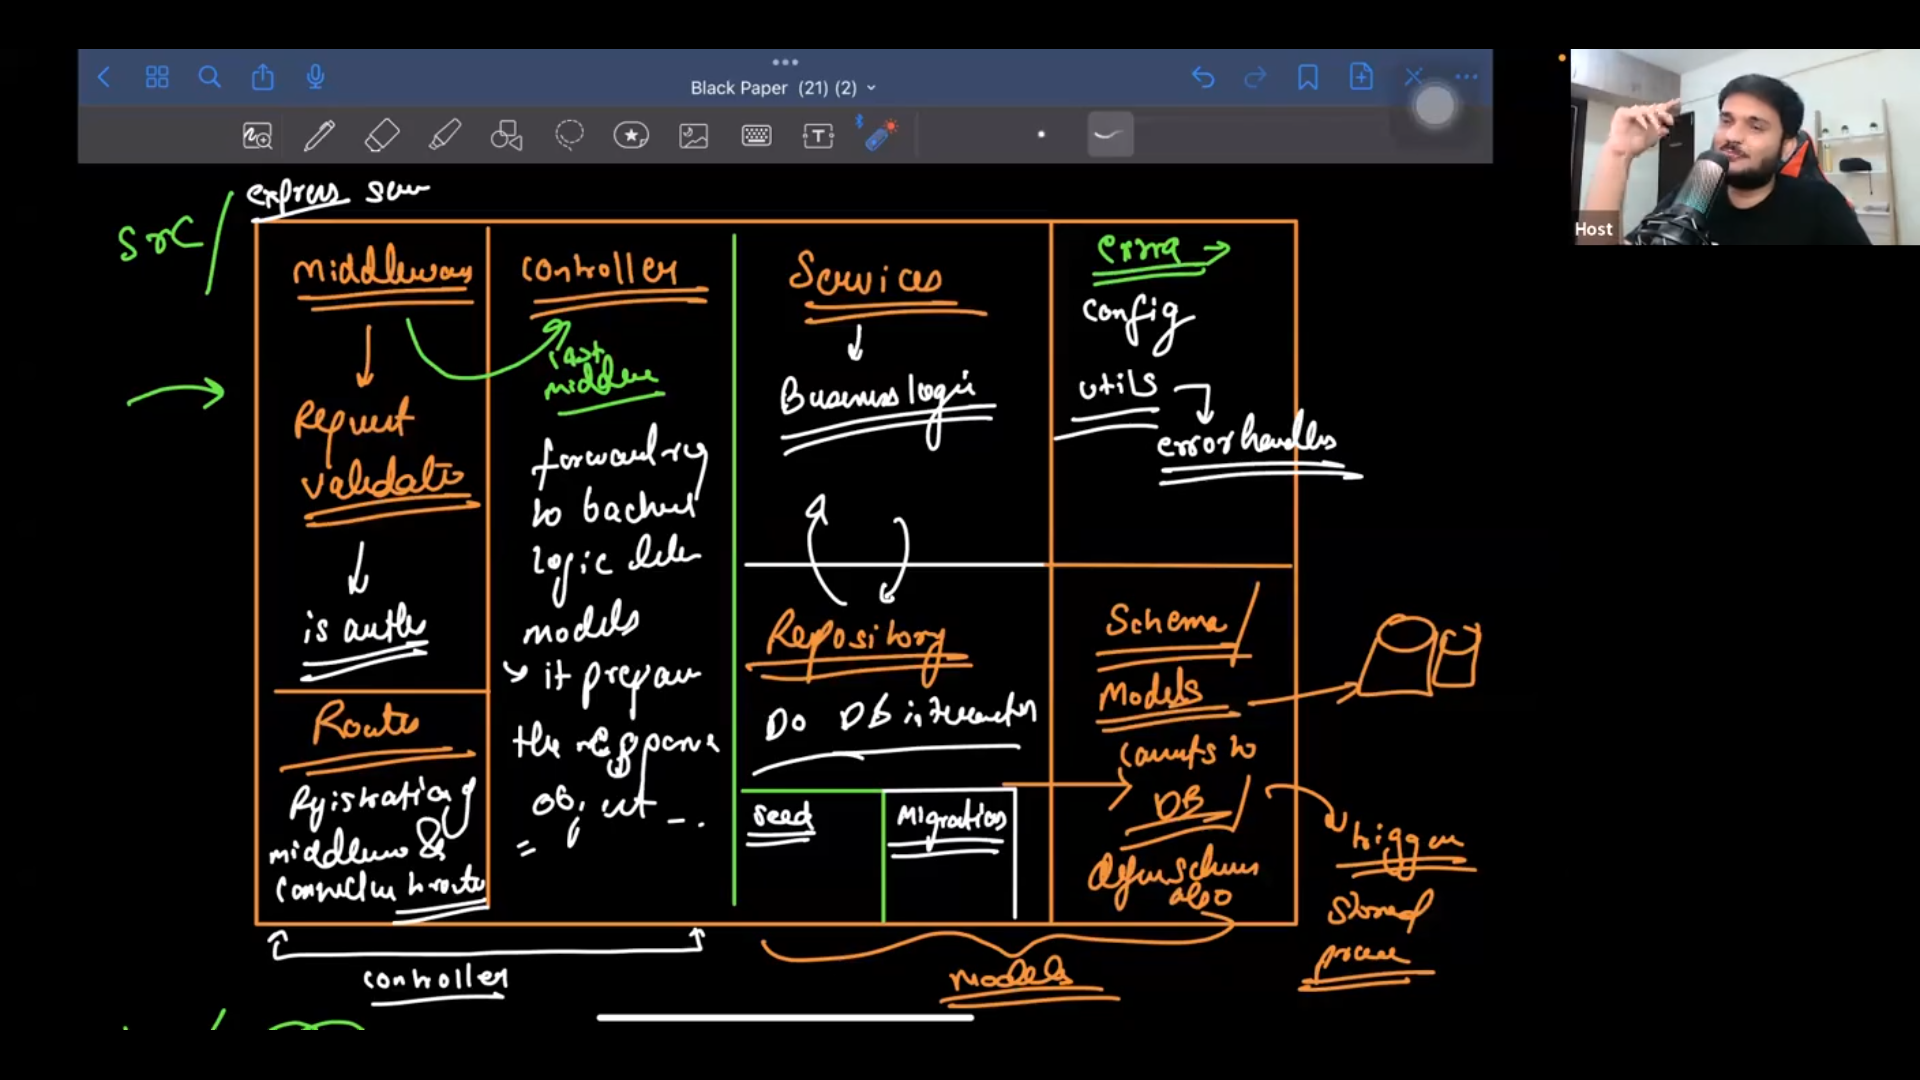 Black Paper (21) (2)
Host
express
src/
middleware
Request
validato
is authe
Route
Registration of
middlew &
to route
controller
last
middlew
forward req
to backend
logic
models
it prepare
the response
object
Services
Business logic
Repository
Do DB interaction
seed
Migration
extra
config
utils
error handles
Schema/
Models
connects to
DB/
also
trigger
stored
controller
models